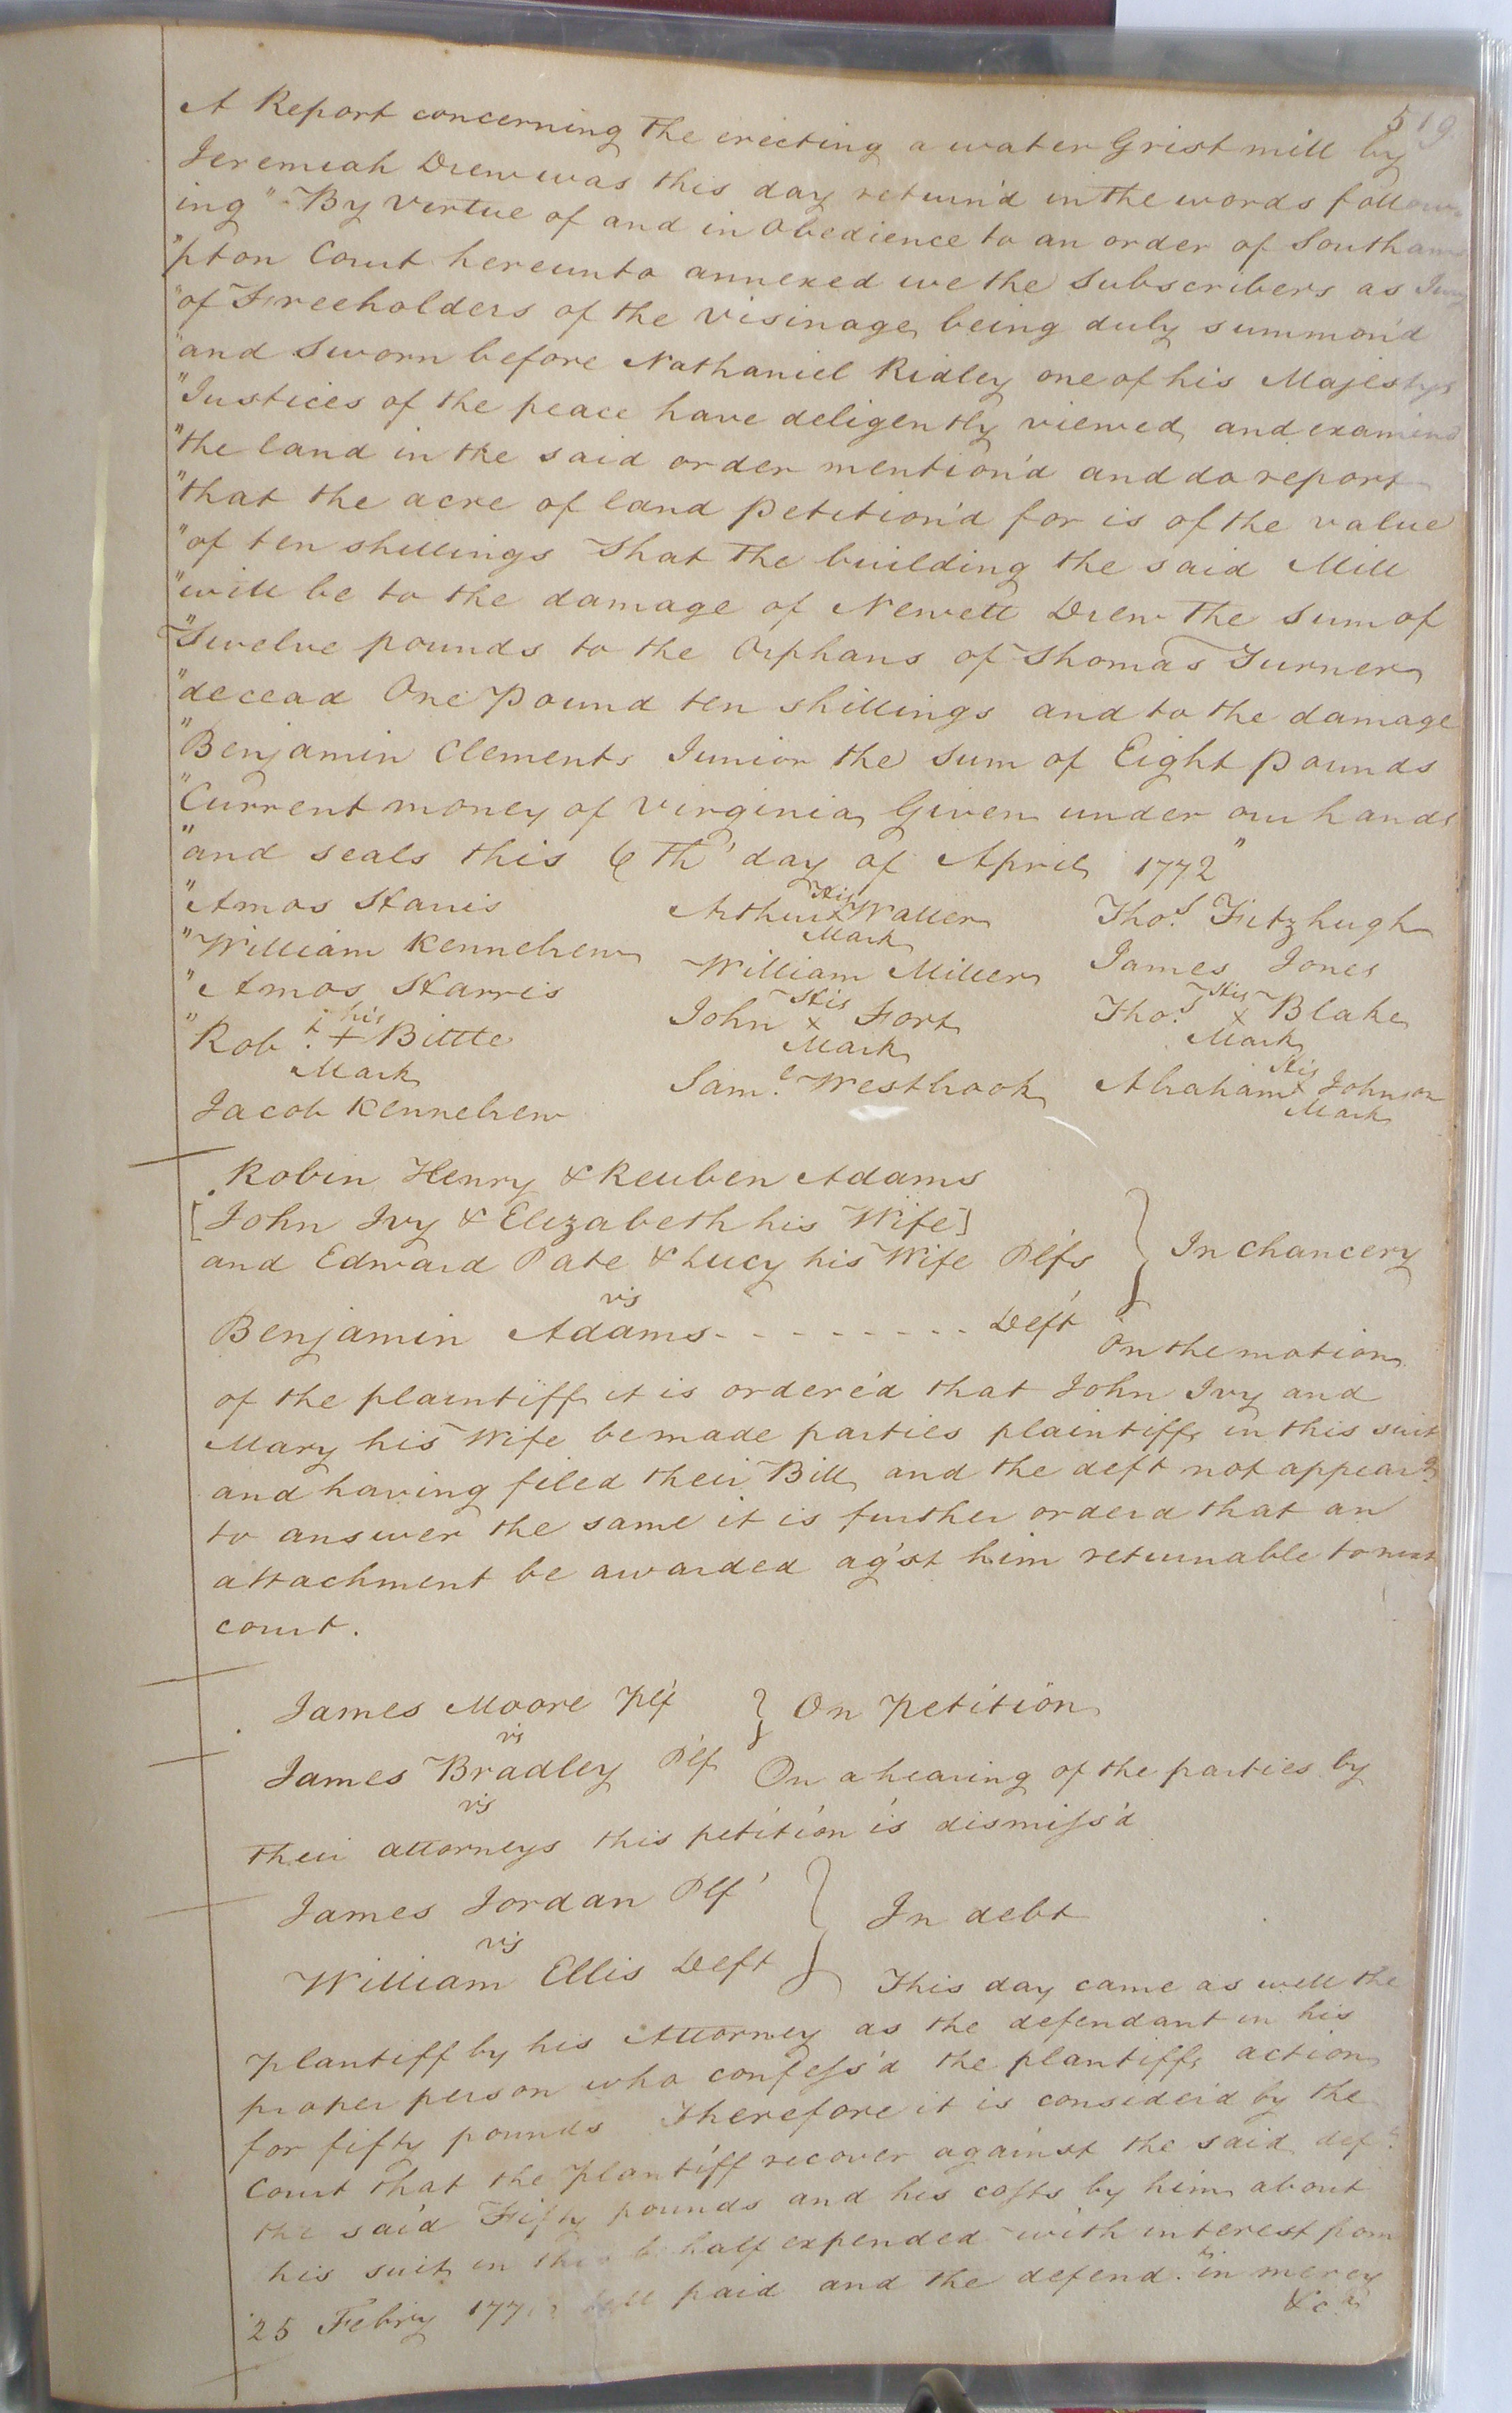 519
A Report concerning The erecting a water Grist mill by
Jeremiah Drew was this day return'd in the words follow
ing " By virtue of and in Obedience to an order of Southam
"pton Court hereunto annexed we the Subscribers as Jury
"of Freeholders of the visinage being duly summon'd
"and Sworn before Nathaniel Ridley one of his Majestys
"Justices of the peace have deligently viewed and examind
"the land in the said order mention'd and do report
"that the acre of land petition'd for is of the value
"of ten shillings That The building the said Mill
"will be to the damage of Newett Drew The Sum of
"Twelve pounds to the Orphans of Thomas Turner
"decead One Pound ten shillings and to the damage
"Benjamin Clements Junior the Sum of Eight pounds
"Current money of virginia Given under our hands
"and seals this 6 Th' day of April 1772"
"Amos Stanis Arthur His x Mark Waller Tho.s Fitzhugh
"William Kennebrew William Miller James Jones
"Amos Harris John His x Mark Fort Tho.s His x Mark Blake
"Rob.t his + Mark Bittle Sam.l Westbrook Abraham His x Mark Johnson
Jacob Kennebrew
Robin Henry & Reuben Adams
[John Ivy & Elizabeth his Wife]
and Edward Pate & Lucy his Wife Pl'fs } In Chancery
vs
Benjamin Adams - - - - - - - - - Deft
On the motion
of the plaintiff it is ordere'd that John Ivy and
Mary his Wife be made parties plaintiffs in this suit
and having filed their Bill and the deft not appear.g
to answer the same it is further orderd that an
attachment be awarded ag'st him returnable to next
court.
James Moore Plf } On Petition
vs
James Bradley Plf On a hearing of the parties by
vs
their attorneys this petition is dismiss'd
James Jordan Plf' } In debt
vs
William Ellis Deft
This day came as well the
plantiff by his Attorney as the defendant in his
proper person who confess'd the plantiffs action
for fifty pounds Therefore it is consider'd by the
Court that the Plantiff recover against the said def.t
the said Fifty pounds and his costs by him about
his suit in this behalf expended with interest from
25 Febr'y 177 till paid and the defend.t in mercy
&c.a